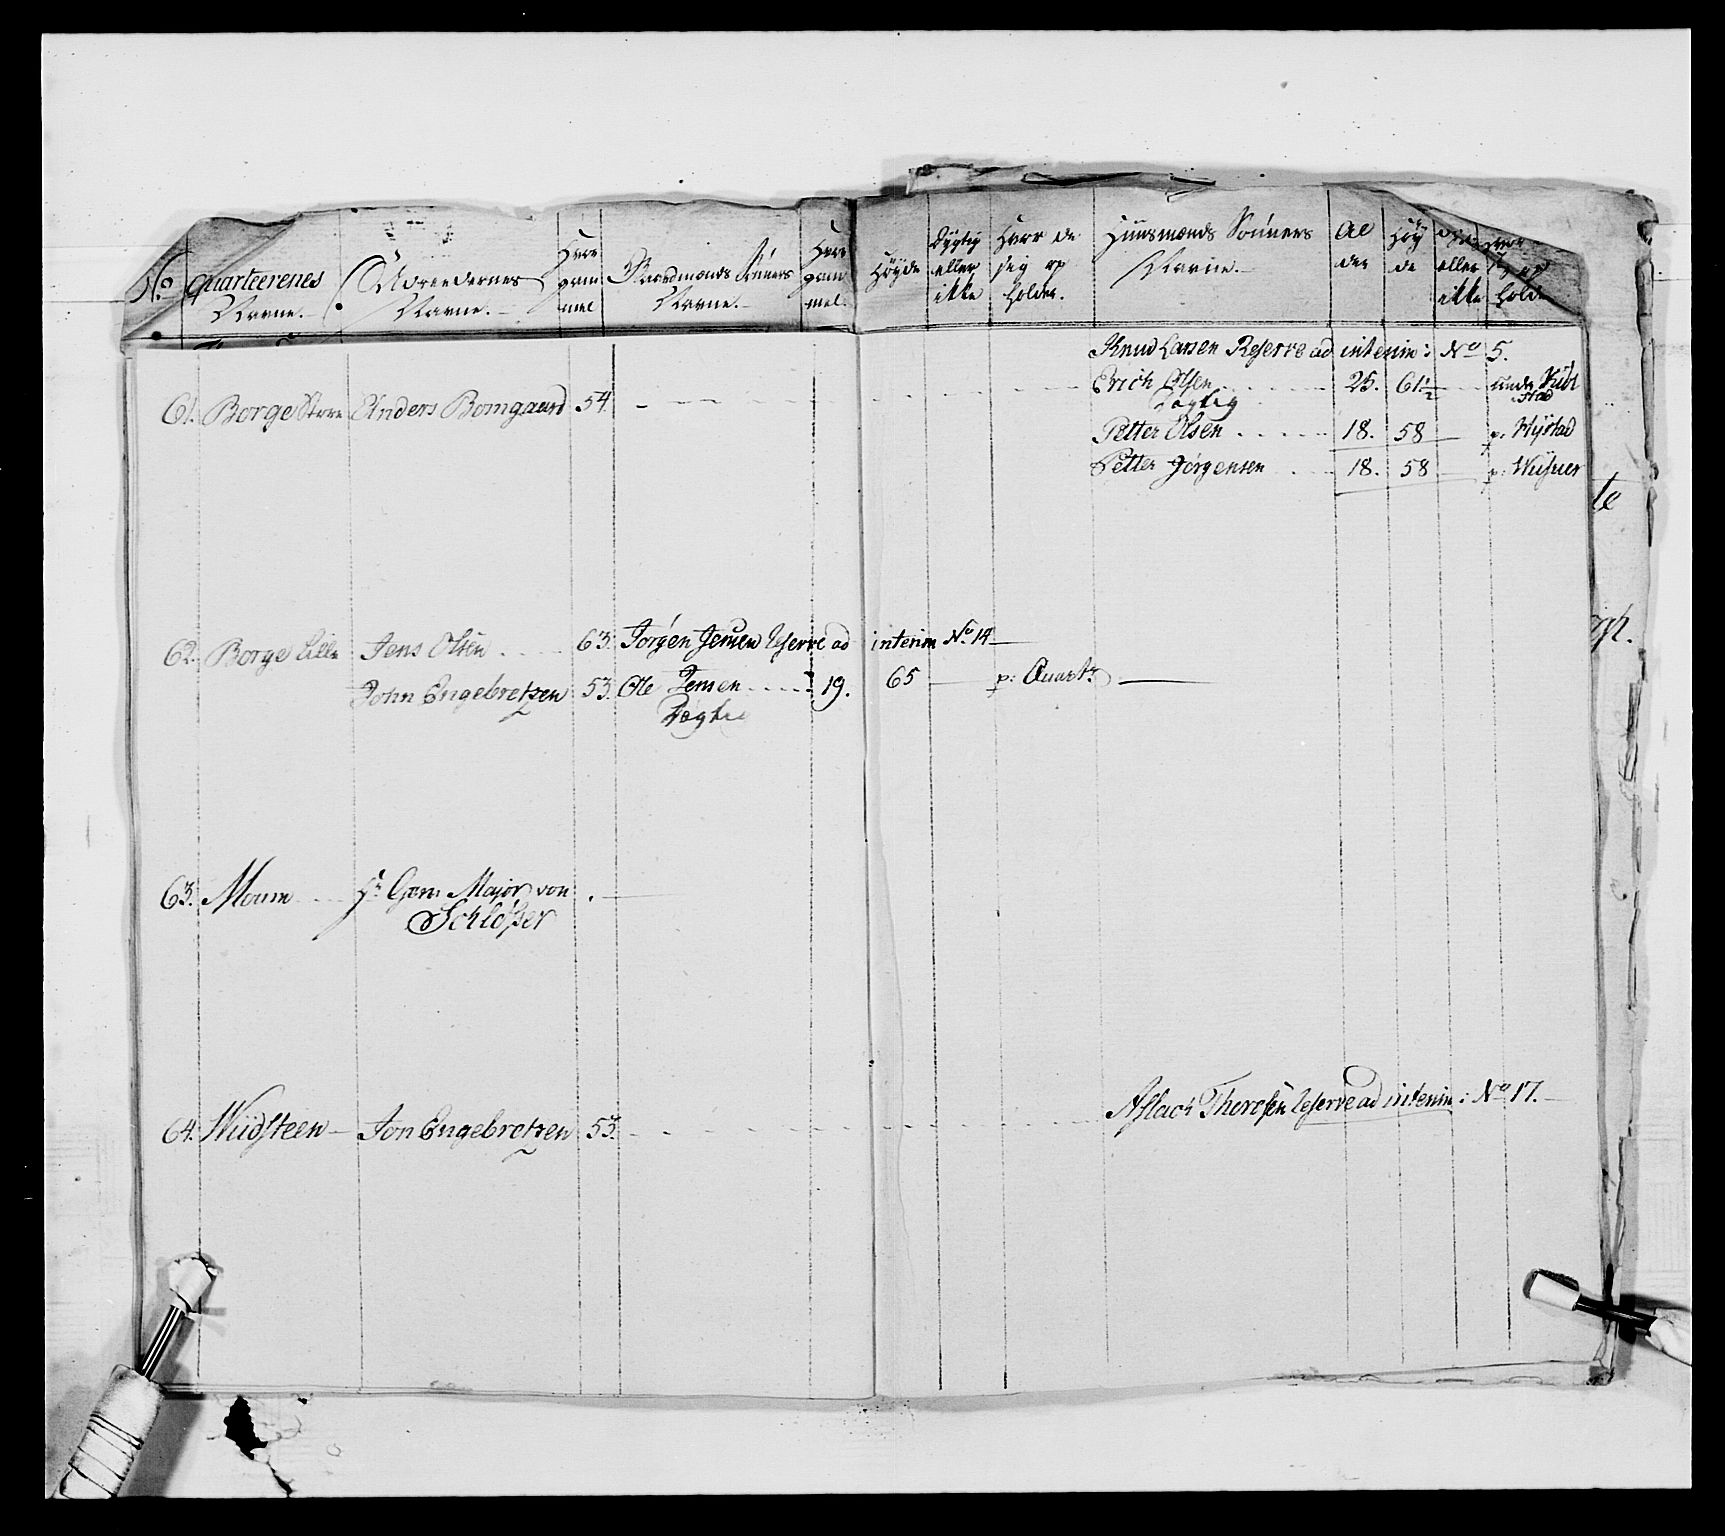 No. quarteerenes Navne. Udreedernes Navne. Hvor gam mel Gaardmænds Sönners Navne. Hvor gam mel. Höyde Dygtig eller ikke Hvor de sig op holder. Huusmænds Sönners Navne. Al der Höy de eller ikke Hvor op hold
Knud Larsen Reserve ad interim: No 5.
61. Borge Store Anders Bomgaard 54. Erich Olsen 25. 61½ under
Dögtig
Petter Olsen 18. 58 p. Nystad
Petter Jörgensen 18. 58 p.
62. Borge Lille Jens Olsen 63. Jörgen Jensen Reserve ad interim No. 14
John Engebretzen 53. Ole Jensen 19. 65 p: Quart:
Dögtig
63. Moum Hr. Gen: Major von
Schlösser
64. Wiidsteen Jon Engebretzen 53. Aslach Thoresen Reserve ad interim: No. 17.
te
gh.